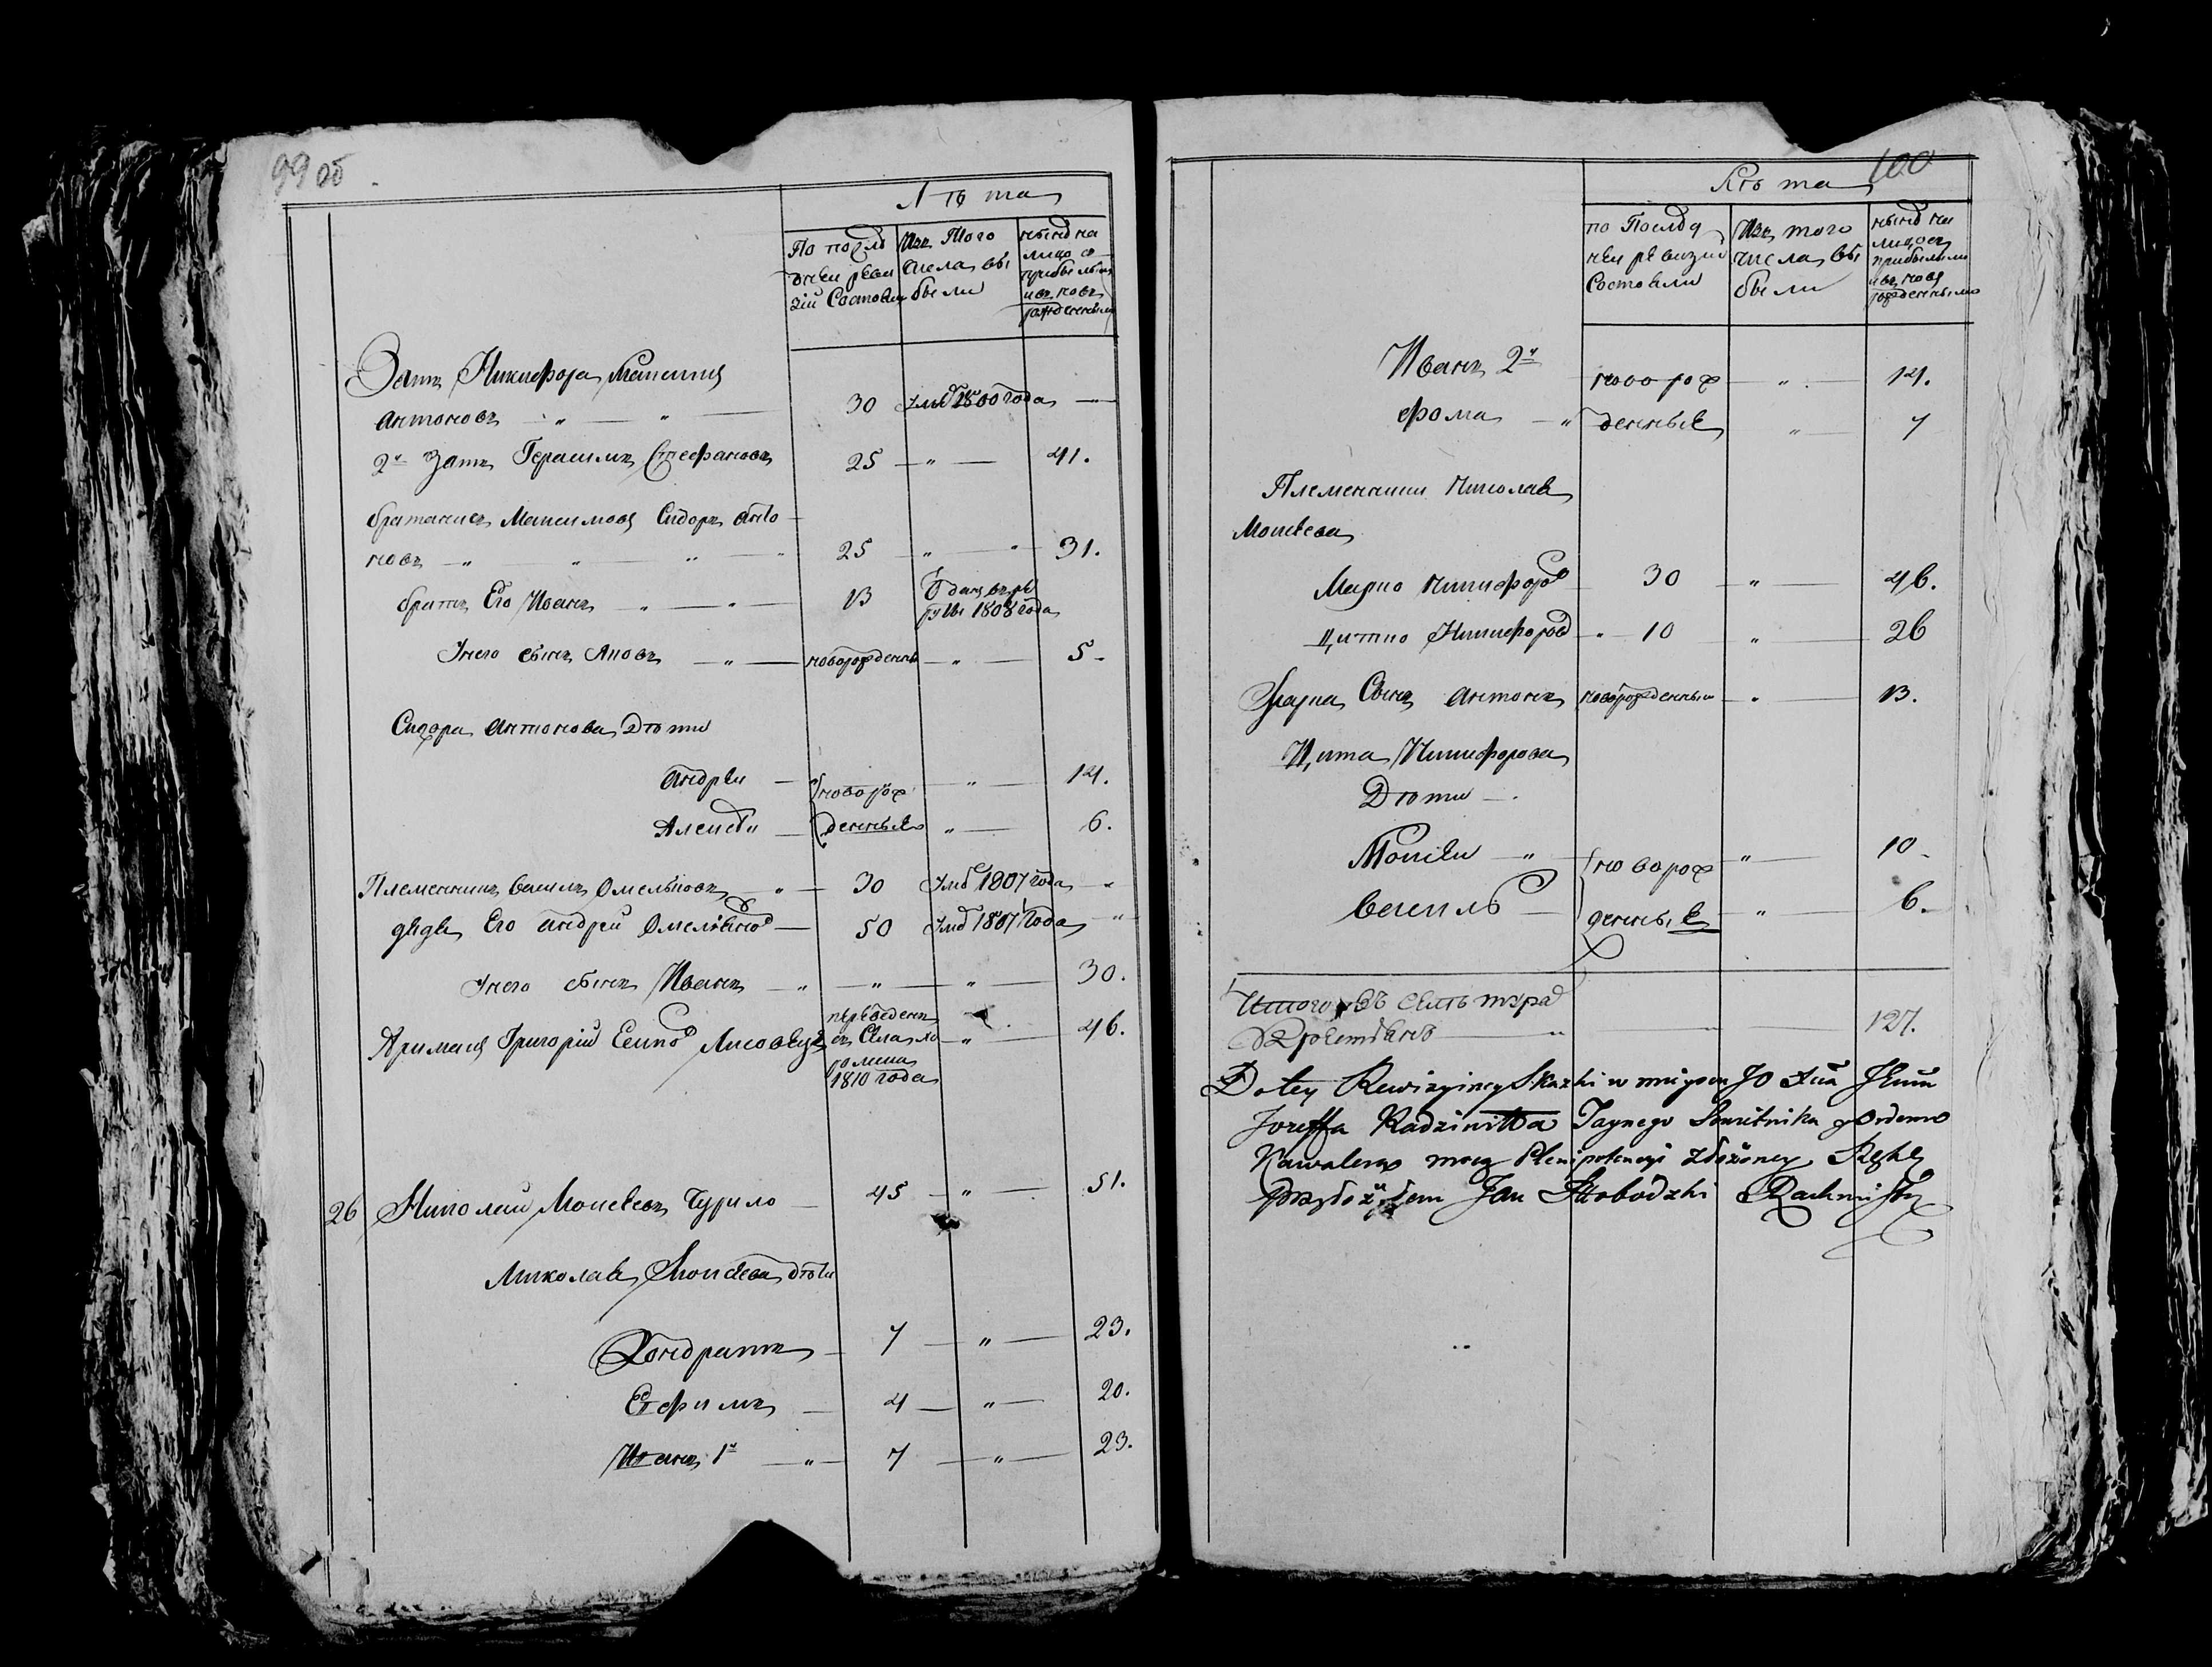 99 об
Лѣта
По послѣ
дней реви
зіи Состояли
Изъ Того
числа вы
были
нынѣ на
лицо съ
прибылыми
и въ новь
рожденными
Зать Никифора Максимъ
Антоновъ " " 30 Умѣ 1800 года
2й Зать Герасимъ Стефановъ 25 " 41.
братаничъ Максимовъ Сидоръ Анто
новъ " " " 25 " 31.
братъ Его Иванъ " " 13 Отданъ въ ре
круты 1808 года
Унего сынъ Яковъ " новорожденны " 5
Сидора Антонова Дѣти
Андрей новорож " 14.
Алексѣй денные " 6.
Племенникъ Василь Омельяновъ " 30 Умѣ 1807 года "
дядя Его Андрей Омельянов 50 Умѣ 1807 года "
Унего сынъ Иванъ " " " 30.
Григорій Лисовецъ
переведенъ
съ Села Хо
1810 года
" 46.
26 Николай Моисеевъ Чурило 45 " 51.
Николая Моисеева дѣти
Кондратъ 7 " 23.
Ефимъ 4 " 20.
Иванъ 1й " 7 " 23.
100
Лѣта
по Послѣд
ней ревизіи
Состояли
Изъ того
числа вы
были
нынѣ на
лицо съ
прибылыми
и въ новь
рожденными
Иванъ 2й новорож " 14.
Фома " денные " 7
Племенники Николая
Моисеева
Марко Никифоров 30 " 46.
Никифоров " 10 " 26
Марка Сынъ Антонъ новорожденный " 13.
Никифорова
Дѣти
Моисей " новорож " 10
Василь денные " 6.
Итого въ семъ
" " 127.
Do tey Rewizyiney Skazki w mieyscu JO Xcia Jmci
Jozeffa Radziwiłła Taynego Sowietnika y Orderow
Kawalera mocą Plenipotencyi złożoney Rękę
przyłożyłem Jan Słobodzki Rachmistrz